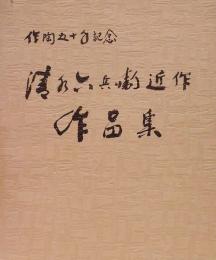 作陶五十年記念
清水六兵衞近作
作品集